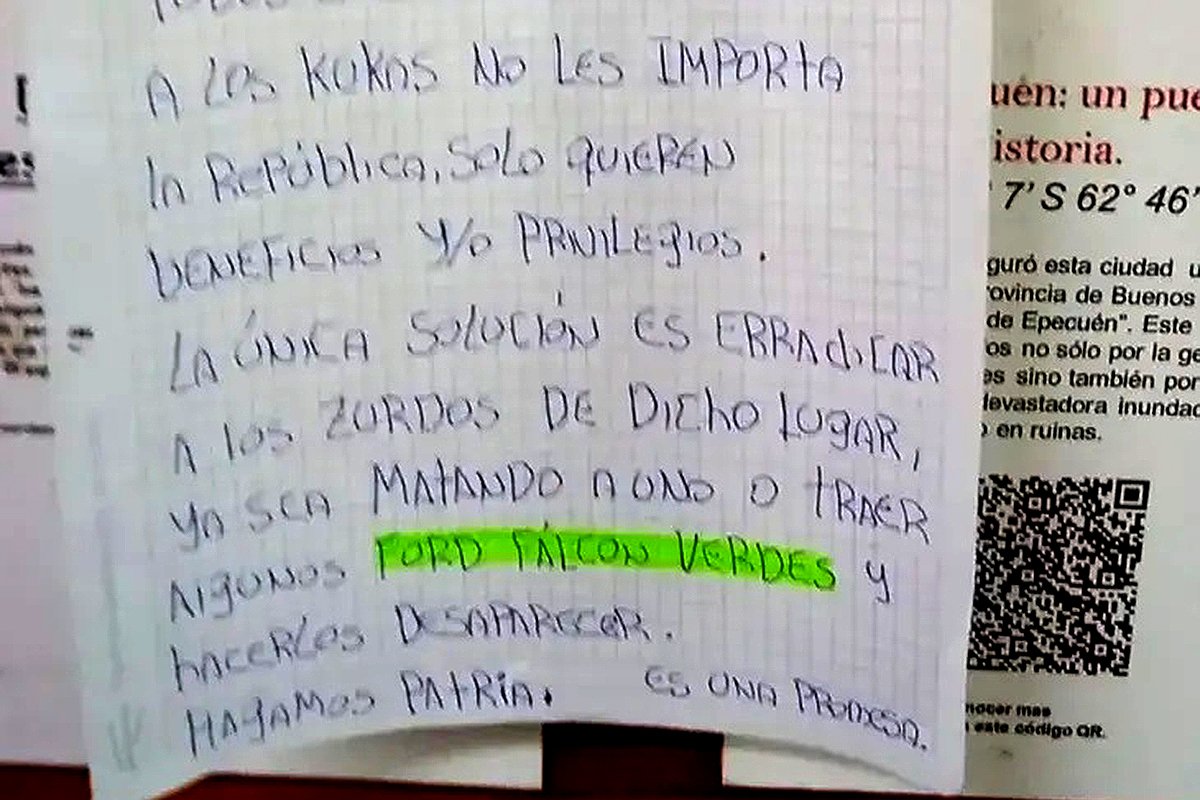 A LOS KUKAS NO LES IMPORTA
la REPública, Solo QUIEREN
BENEFICIOS Y/O PRIVILEGIOS.
LA ÚNICA SOLUCIÓN ES ERRADICAR
A los ZURDOS DE DICHO LUGAR,
YA SEA MATANDO A UNO O TRAER
ALGUNOS FORD FÁLCON VERDES y
HACERLOS DESAPARECER.
HAGAMOS PATRIA. ES UNA PROMESA.
es
uén: un pue
istoria.
7' S 62° 46'
guró esta ciudad u
ovincia de Buenos
de Epecuén". Este
os no sólo por la ge
es sino también por
devastadora inundac
en ruinas.
nocer mas
este código QR.